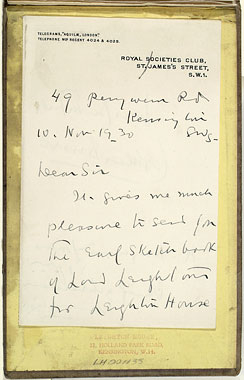 TELEGRAMS, "
TELEPHONE Nº REGENT 4024 & 4025.
ROYAL SOCIETIES CLUB,
ST. JAMES'S STREET,
S.W.1.
49 Penywern Rd
Kensington
10. Nov. 1930 SW5.
Dear Sir
It gives me much
pleasure to send for
the Early Sketch book
of Lord Leighton's
for Leighton House
LEIGHTON HOUSE,
12, HOLLAND PARK ROAD,
KENSINGTON, W.14.